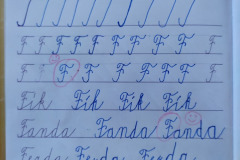 F F F F F F F F F
F F F F F F F F
Fík Fík Fík Fík
Fanda Fanda Fanda
Ferda Ferda Ferda